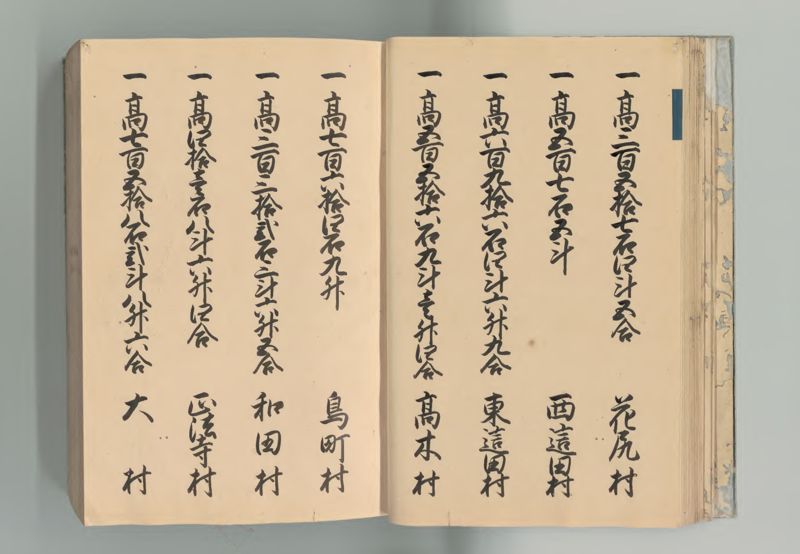 一 高三百五拾七石四斗五合 花尻村
一 高五百七石五斗 西這田村
一 高六百九拾六石四斗六升九合 東這田村
一 高五百五拾六石九斗壱升四合 高木村
一 高七百六拾四石九升 鳥町村
一 高三百三拾弐石三斗六升五合 和田村
一 高四拾壱石八斗六升四合 正法寺村
一 高七百五拾八石弐斗八升六合 大村